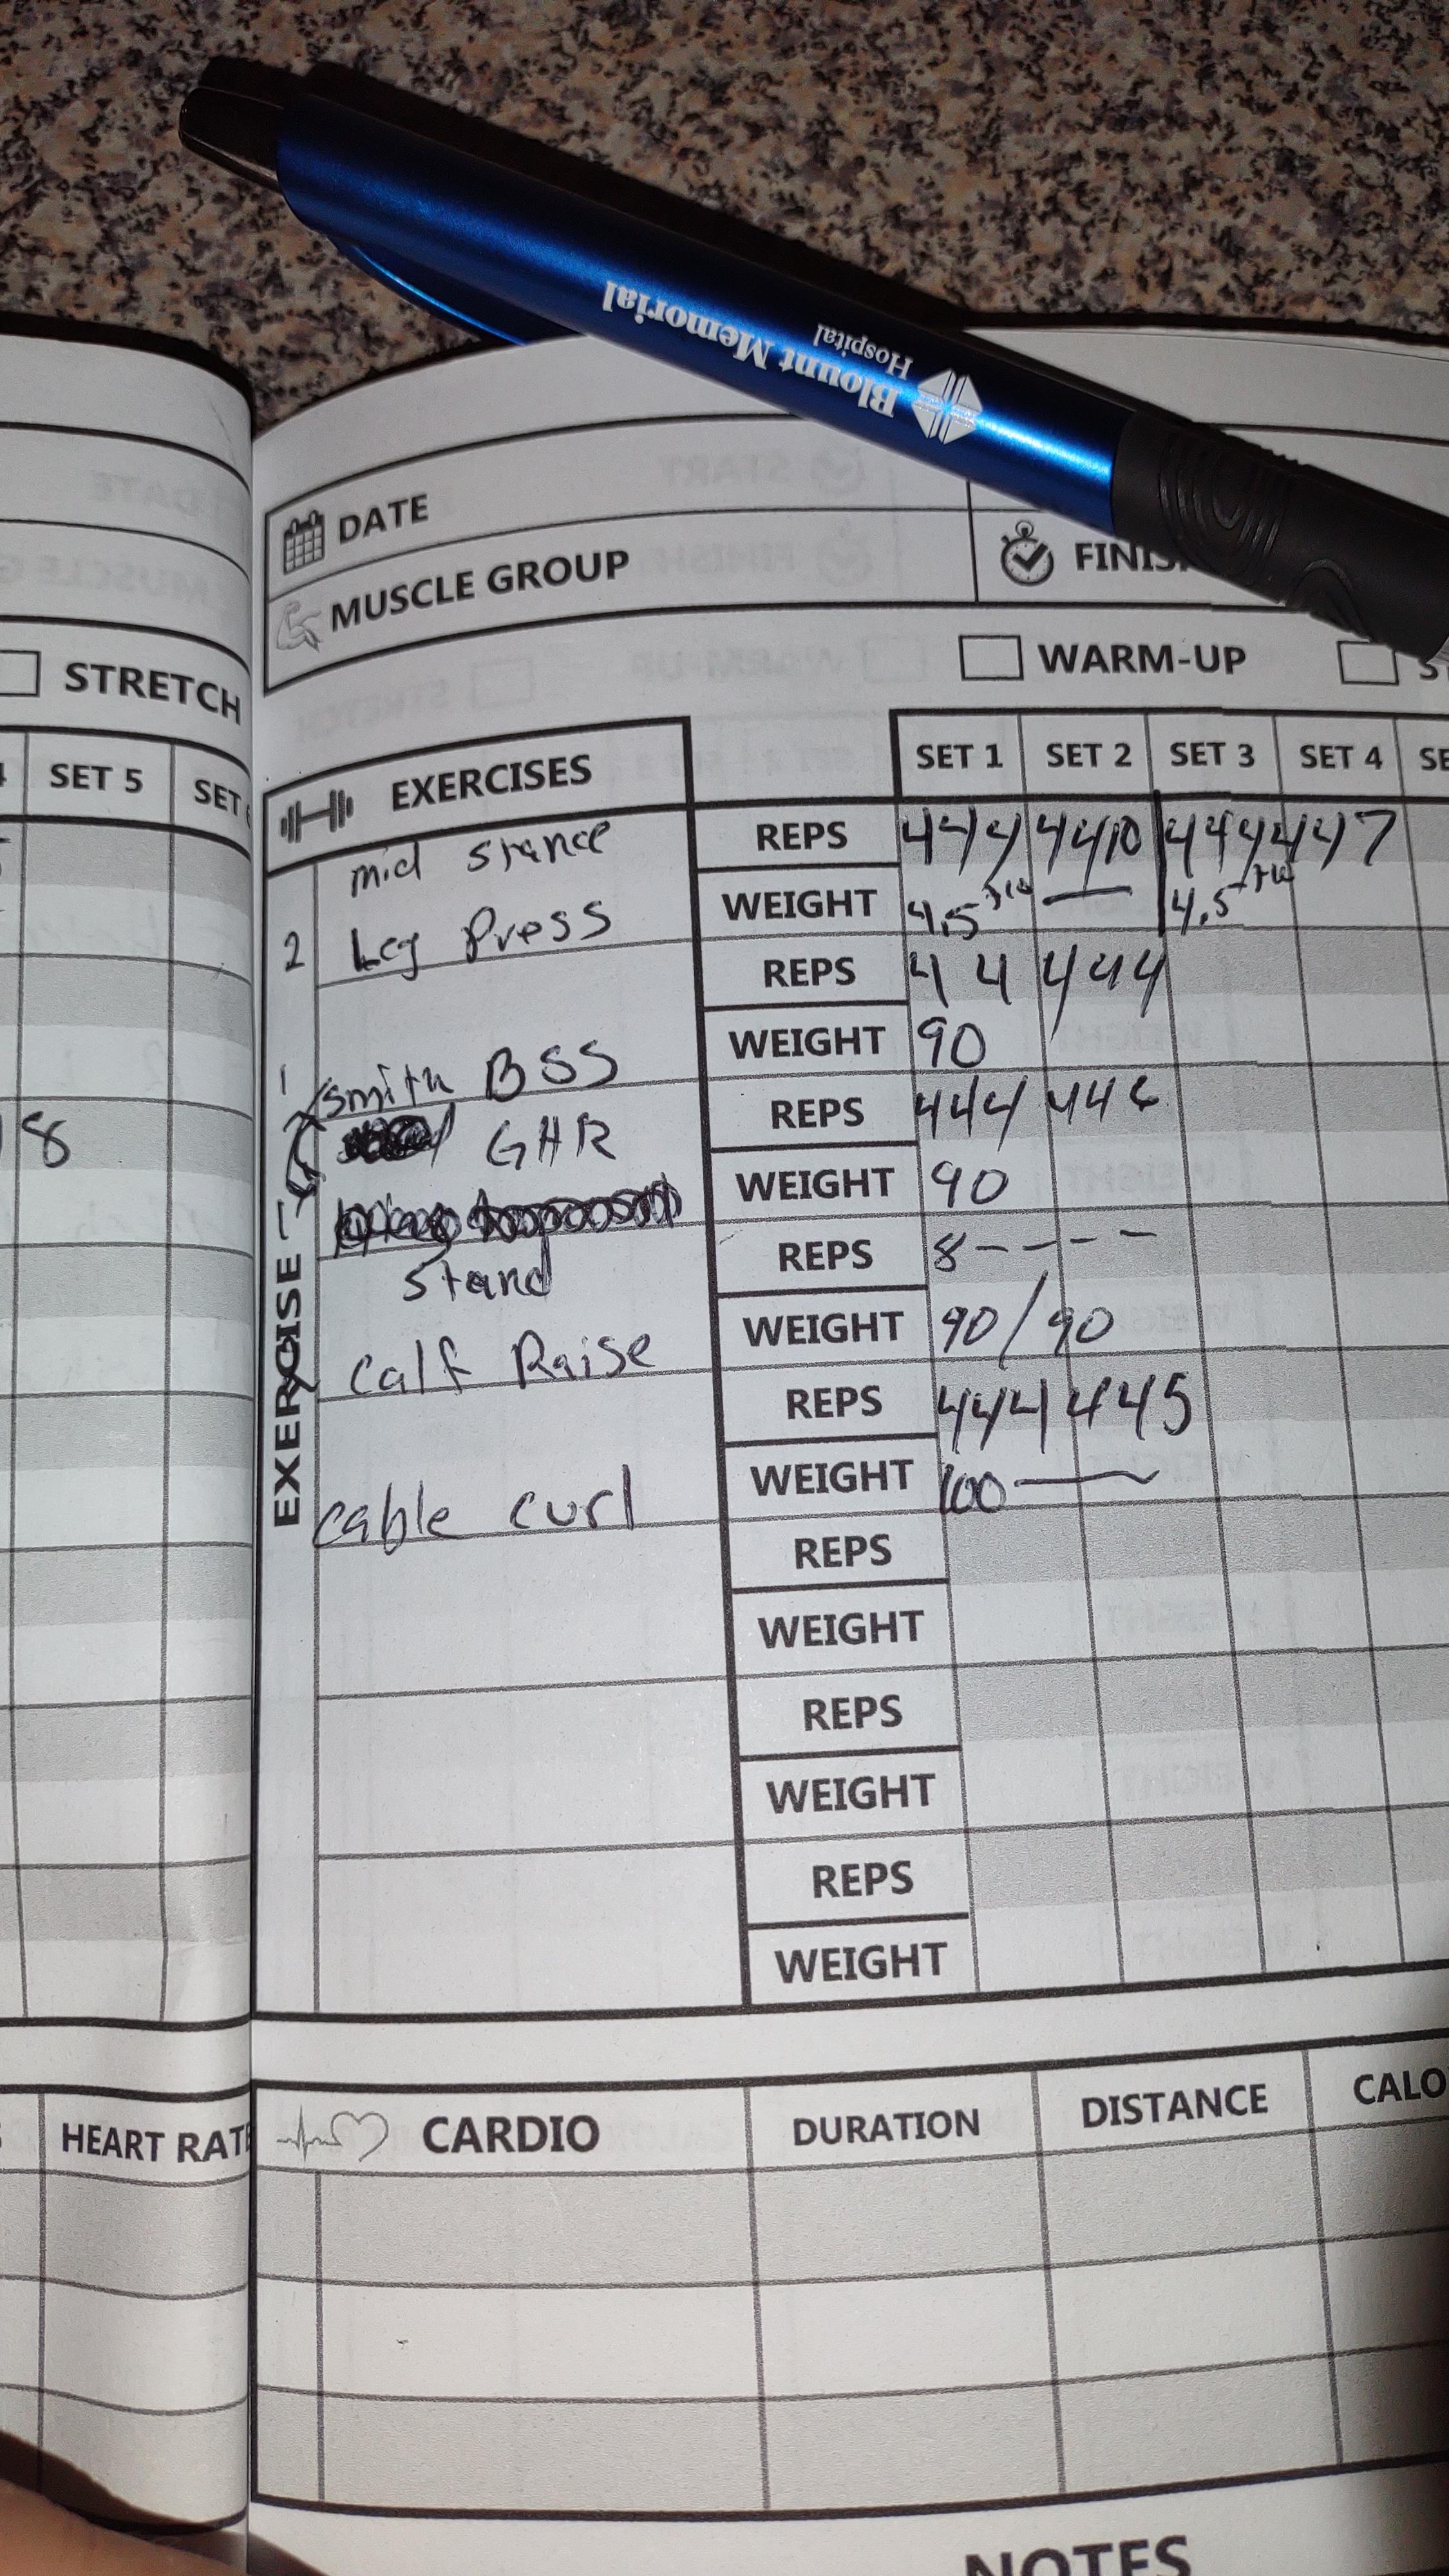 Blount Memorial
Hospital
DATE
MUSCLE GROUP
FINIS
WARM-UP
STRETCH
SET 5
SET
EXERCISES
SET 1 SET 2 SET 3 SET 4 SE
mid stance REPS 444 4410 444447
2 Leg Press WEIGHT 4.5 4.5
REPS 4 4 444
1 smith BSS WEIGHT 90
8
GHR REPS 444 446
WEIGHT 90
EXERCISE
Stand REPS 8 - - - -
Calf Raise WEIGHT 90/90
REPS 444 445
cable curl WEIGHT 100
REPS
WEIGHT
REPS
WEIGHT
REPS
WEIGHT
HEART RAT
CARDIO DURATION DISTANCE CALO
NOTES